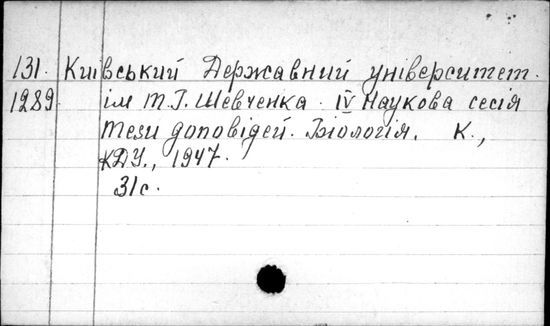 131. Київський Державний університет.
1289. ім Т. Г. Шевченка. IV Наукова сесія
Тези доповідей. Біологія. К.,
КДУ., 1947.
31с.